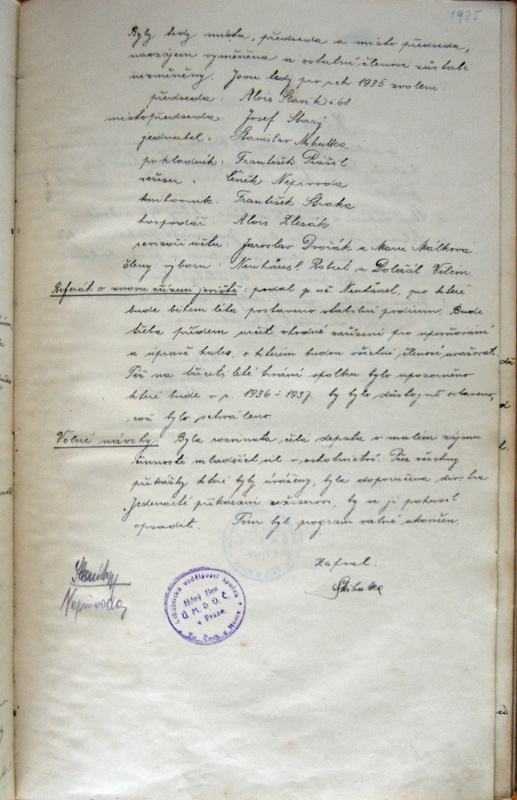 1935
Byly tedy místa, předseda a místopředseda,
navzájem vyměněna a ostatní členové zůstali
nezměněny. Jsou tedy pro rok 1936 zvoleni:
předseda: Alois Slavík č 68
místopředseda Josef Starý
jednatel: Stanislav Mihulka
pokladník: František Prášil
režiser: Čeněk Nepivoda
knihovník: František Straka
hospodář Alois Zlesák
revisoři účtu Jaroslav Dvořák a Marie Málková
členy výboru: Neuhäusl Robert a Doležal Vilém
Referát o znovu zřízení jeviště: podal p. uč. Neuhäusl, pro které
bude během léta postaveno stabilní podium. Bude
třeba předem určit vhodné zařízení pro upevňování
a úpravě kulis, o kterém budou všichni členové uvažovat.
Též na třicetileté trvání spolku bylo upozorněno
které bude v r. 1936 ÷ 1937. by bylo důstojně oslaveno,
což bylo schváleno.
Volné návrhy: Byla rozvinuta čilá debata o malém zájmu
činnosti mladších sil v ochotnictví. Pro všechny
překážky které byly uváženy, byla doporučena div. hra
"Jedenácté přikázání režiserovi, by se ji pokusil
obsadit. Tím byl program valné ukončen.
Zapsal.
SMihulka
Slavík
Nepivoda
Ochotnicko vzdělávací spolek
řádný člen
Ú.M.D.O.Č.
v Praze.